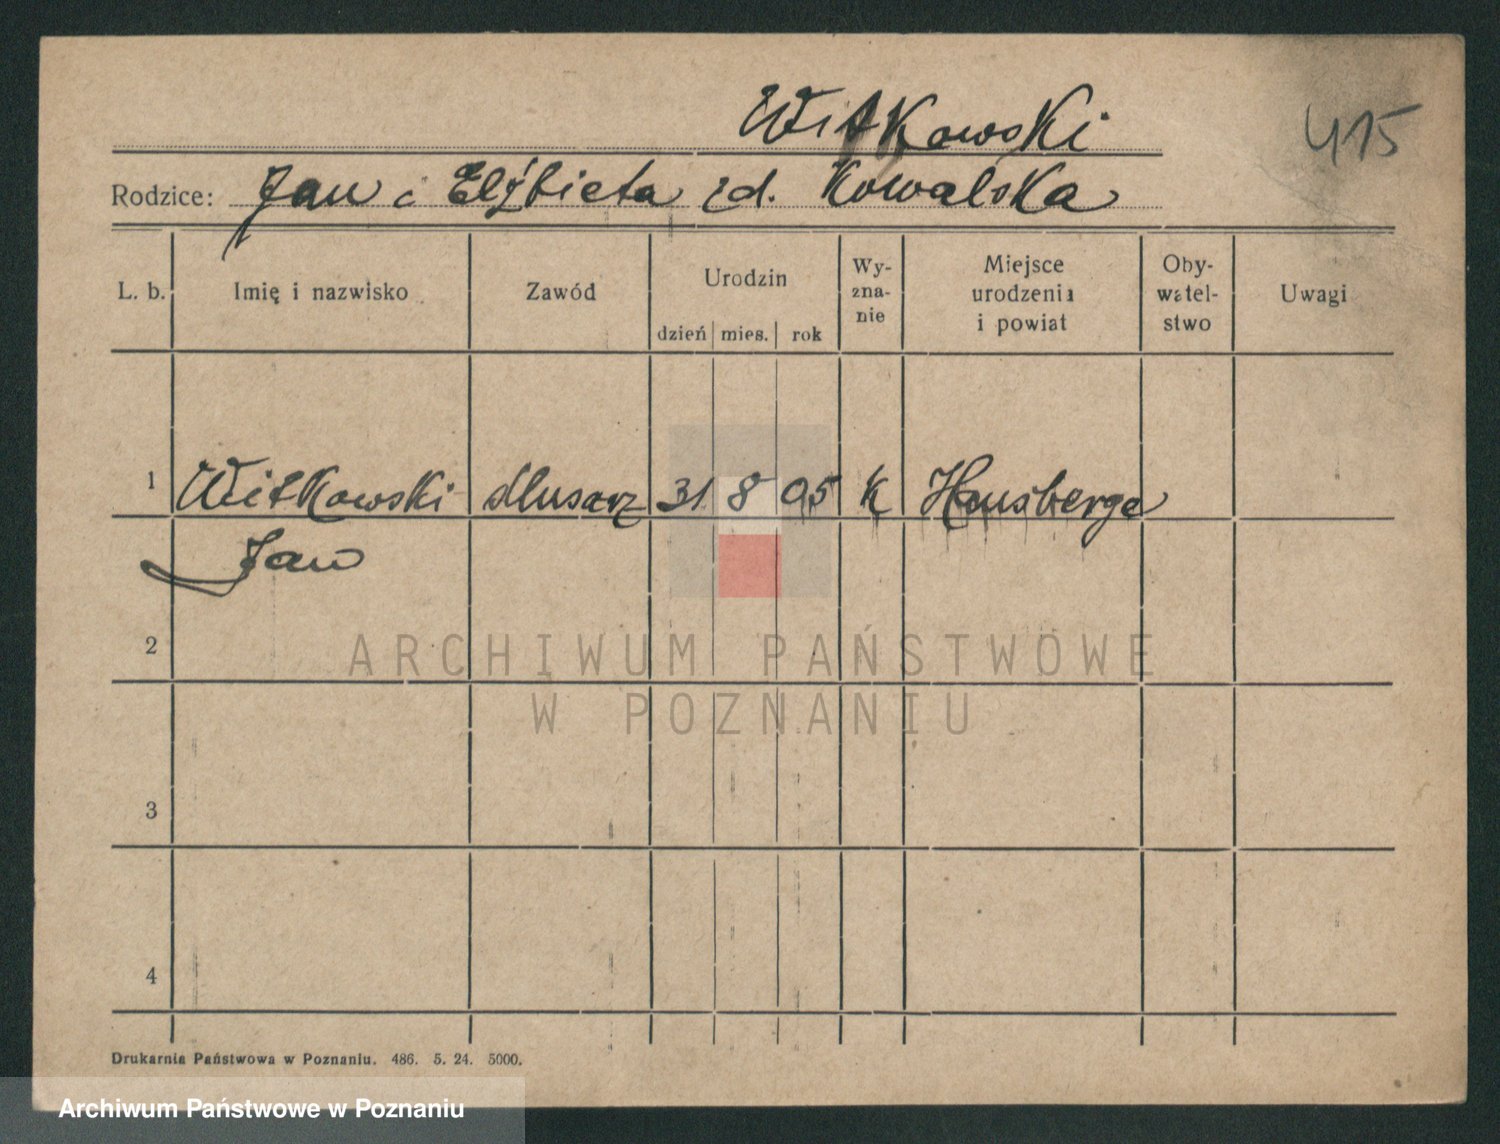 Witkowski
415
Rodzice: Jan i Elżbieta zd. Kowalska
L. b. Imię i nazwisko Zawód Urodzin dzień mies. rok Wy-zna-nie Miejsce urodzenia i powiat Oby-watel-stwo Uwagi
1 Witkowski ślusarz 31 8 05 k Hausberge
Jan
2
ARCHIWUM PAŃSTWOWE
W POZNANIU
3
4
Drukarnia Państwowa w Poznaniu. 486. 5. 24. 5000.
Archiwum Państwowe w Poznaniu